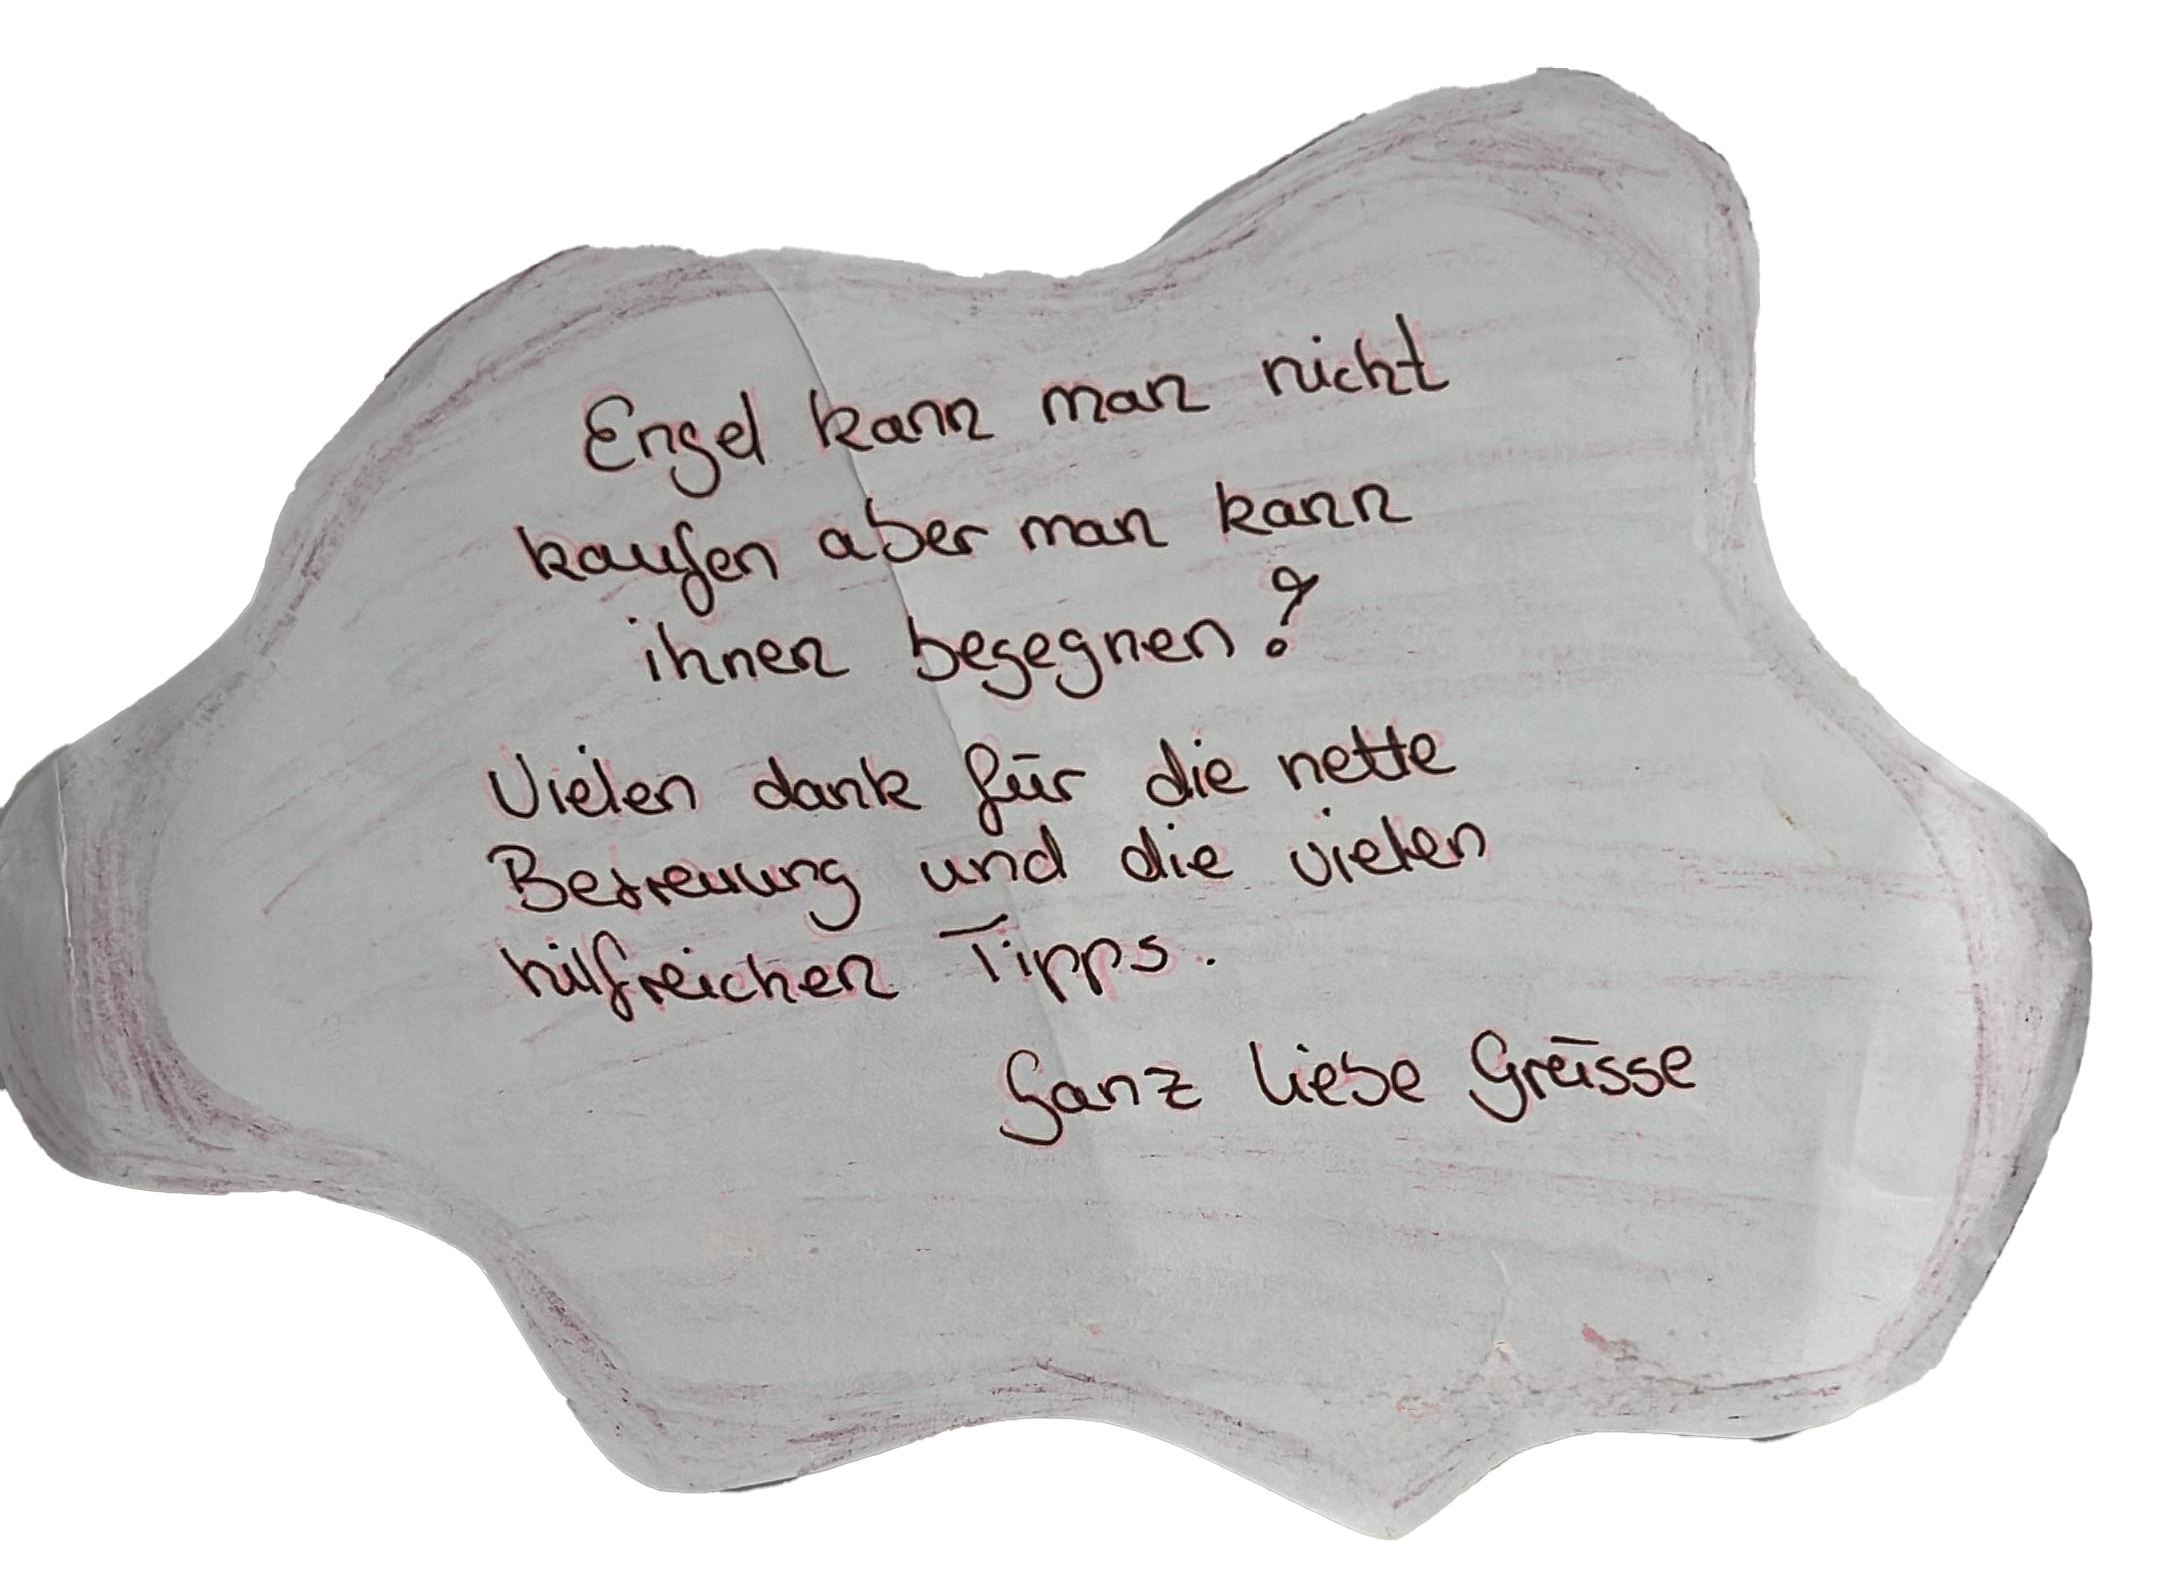 Engel kann man nicht
kaufen aber man kann
ihnen begegnen!
Vielen dank für die nette
Betreuung und die vielen
hilfreichen Tipps.
Ganz liebe Grüsse